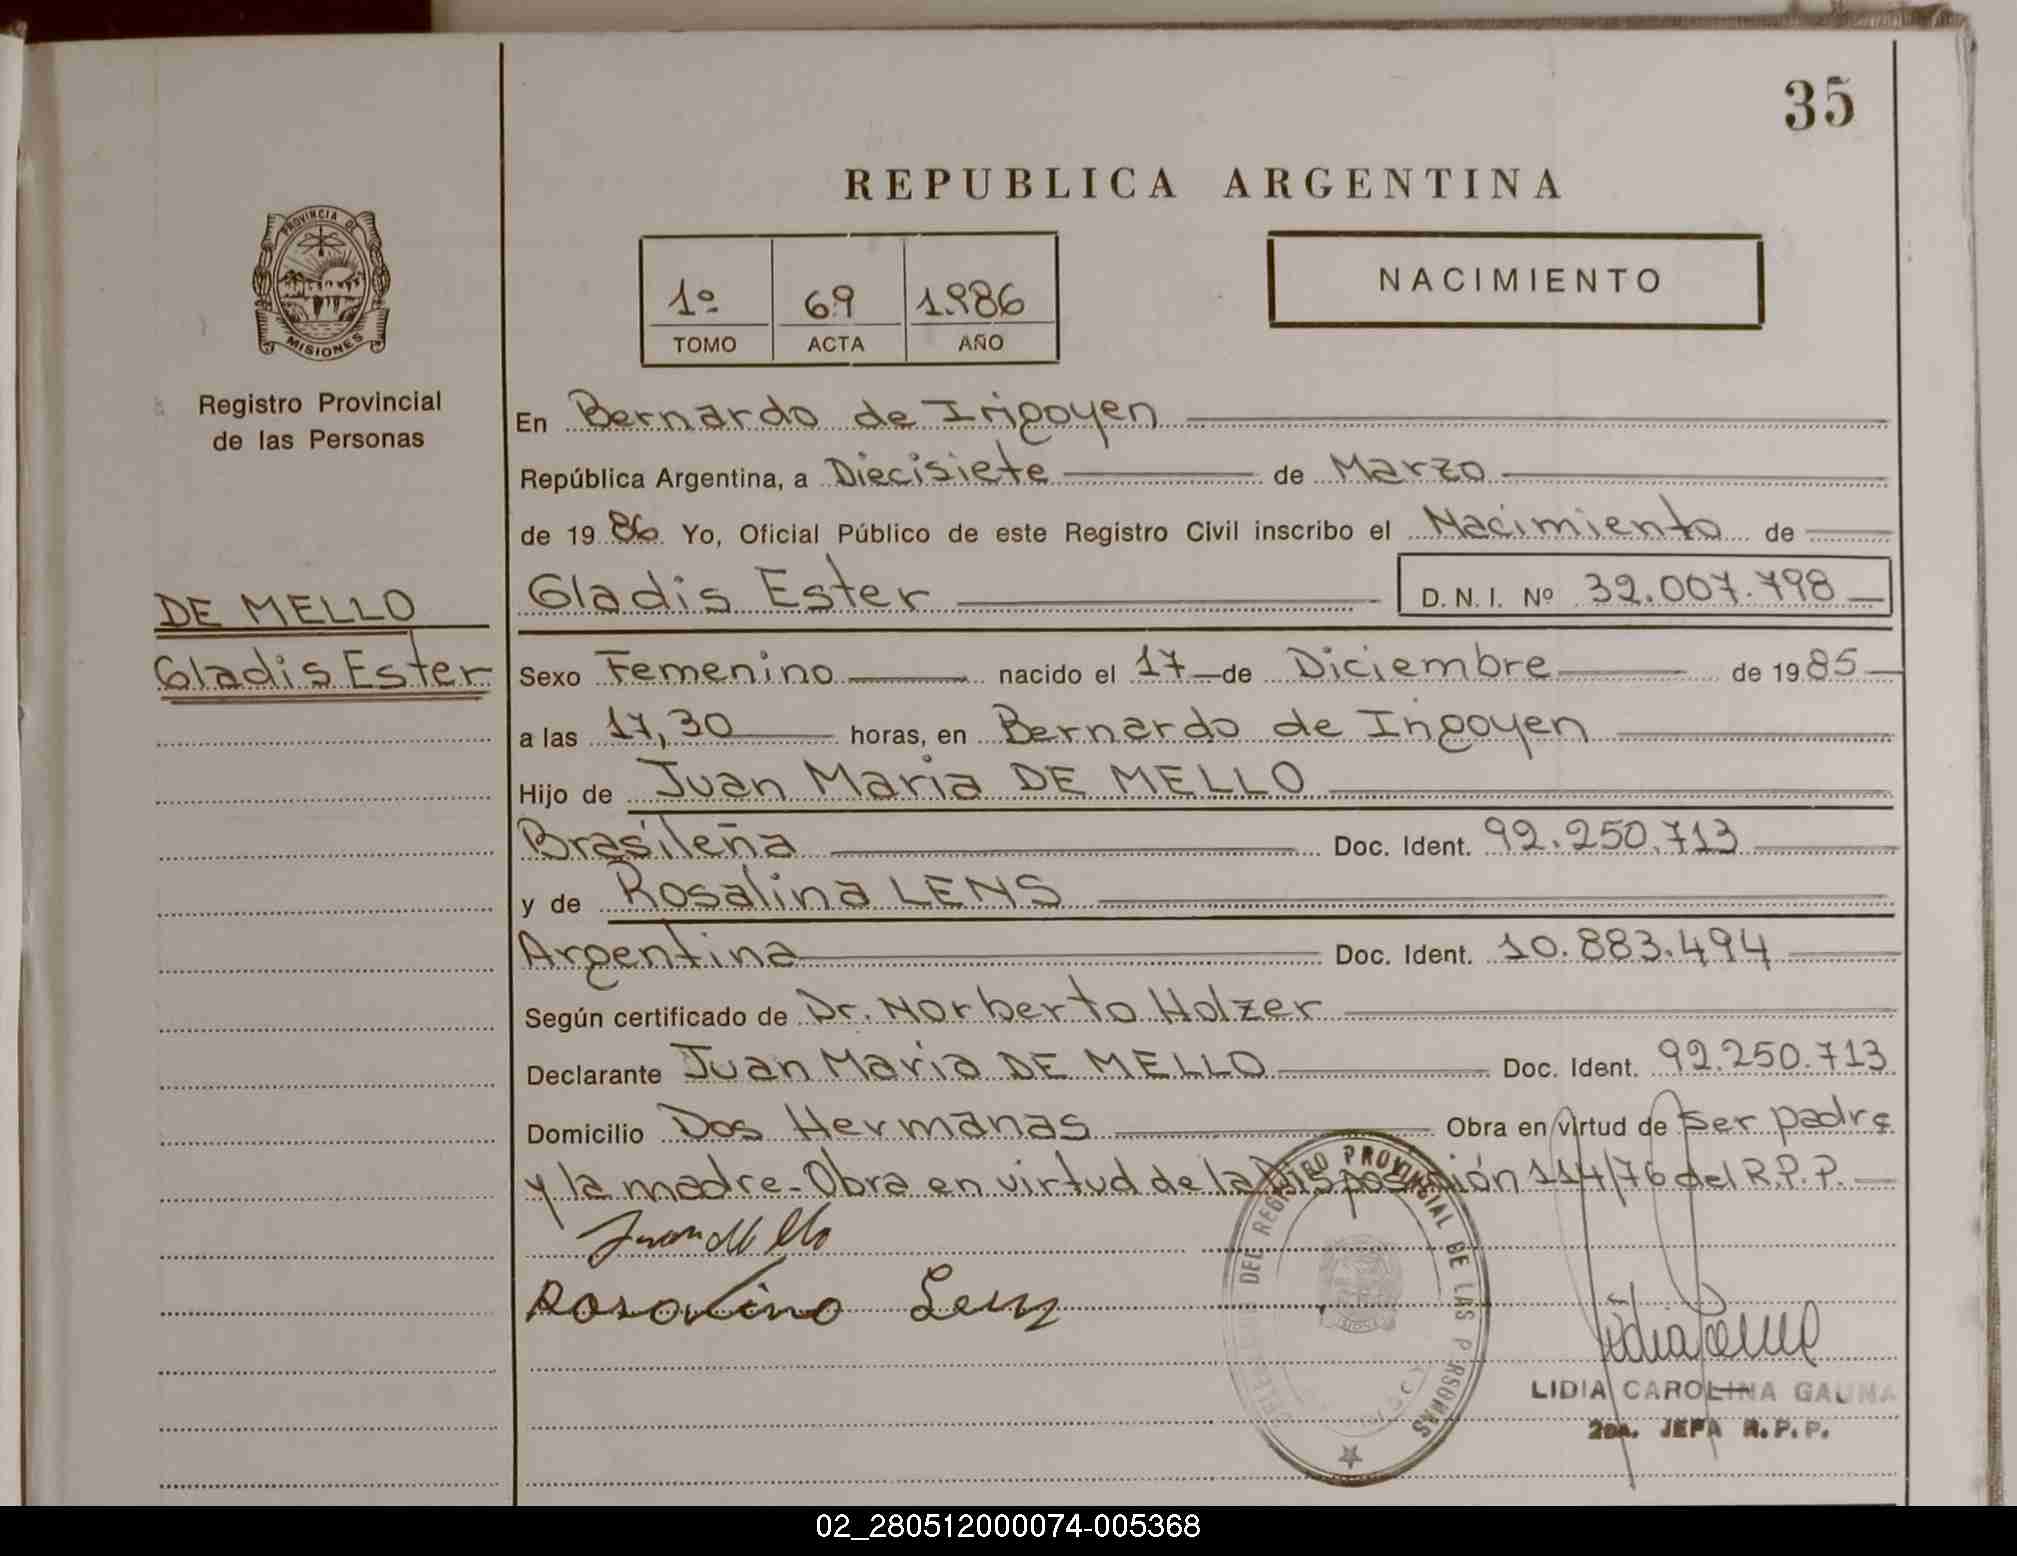 35
REPUBLICA ARGENTINA
PROVINCIA DE
MISIONES
Registro Provincial
de las Personas
1º 69 1.986
TOMO ACTA AÑO
NACIMIENTO
En Bernardo de Irigoyen
República Argentina, a Diecisiete de Marzo
de 19 86 Yo, Oficial Público de este Registro Civil inscribo el Nacimiento de
DE MELLO
Gladis Ester
Gladis Ester D. N. I. Nº 32.007.798
Sexo Femenino nacido el 17 de Diciembre de 19 85
a las 17,30 horas, en Bernardo de Irigoyen
Hijo de Juan Maria DE MELLO
Brasileña Doc. Ident. 92.250.713
y de Rosalina LENS
Argentina Doc. Ident. 10.883.494
Según certificado de Dr. Norberto Holzer
Declarante Juan Maria DE MELLO Doc. Ident. 92.250.713
Domicilio Dos Hermanas Obra en virtud de ser padre
y la madre - Obra en virtud de la Disposición 114/76 del R.P.P.
Rosalino Lens
DEL REGISTRO PROVINCIAL DE LAS PERSONAS
LIDIA CAROLINA GAUNA
2DA. JEFA R.P.P.
02_280512000074-005368